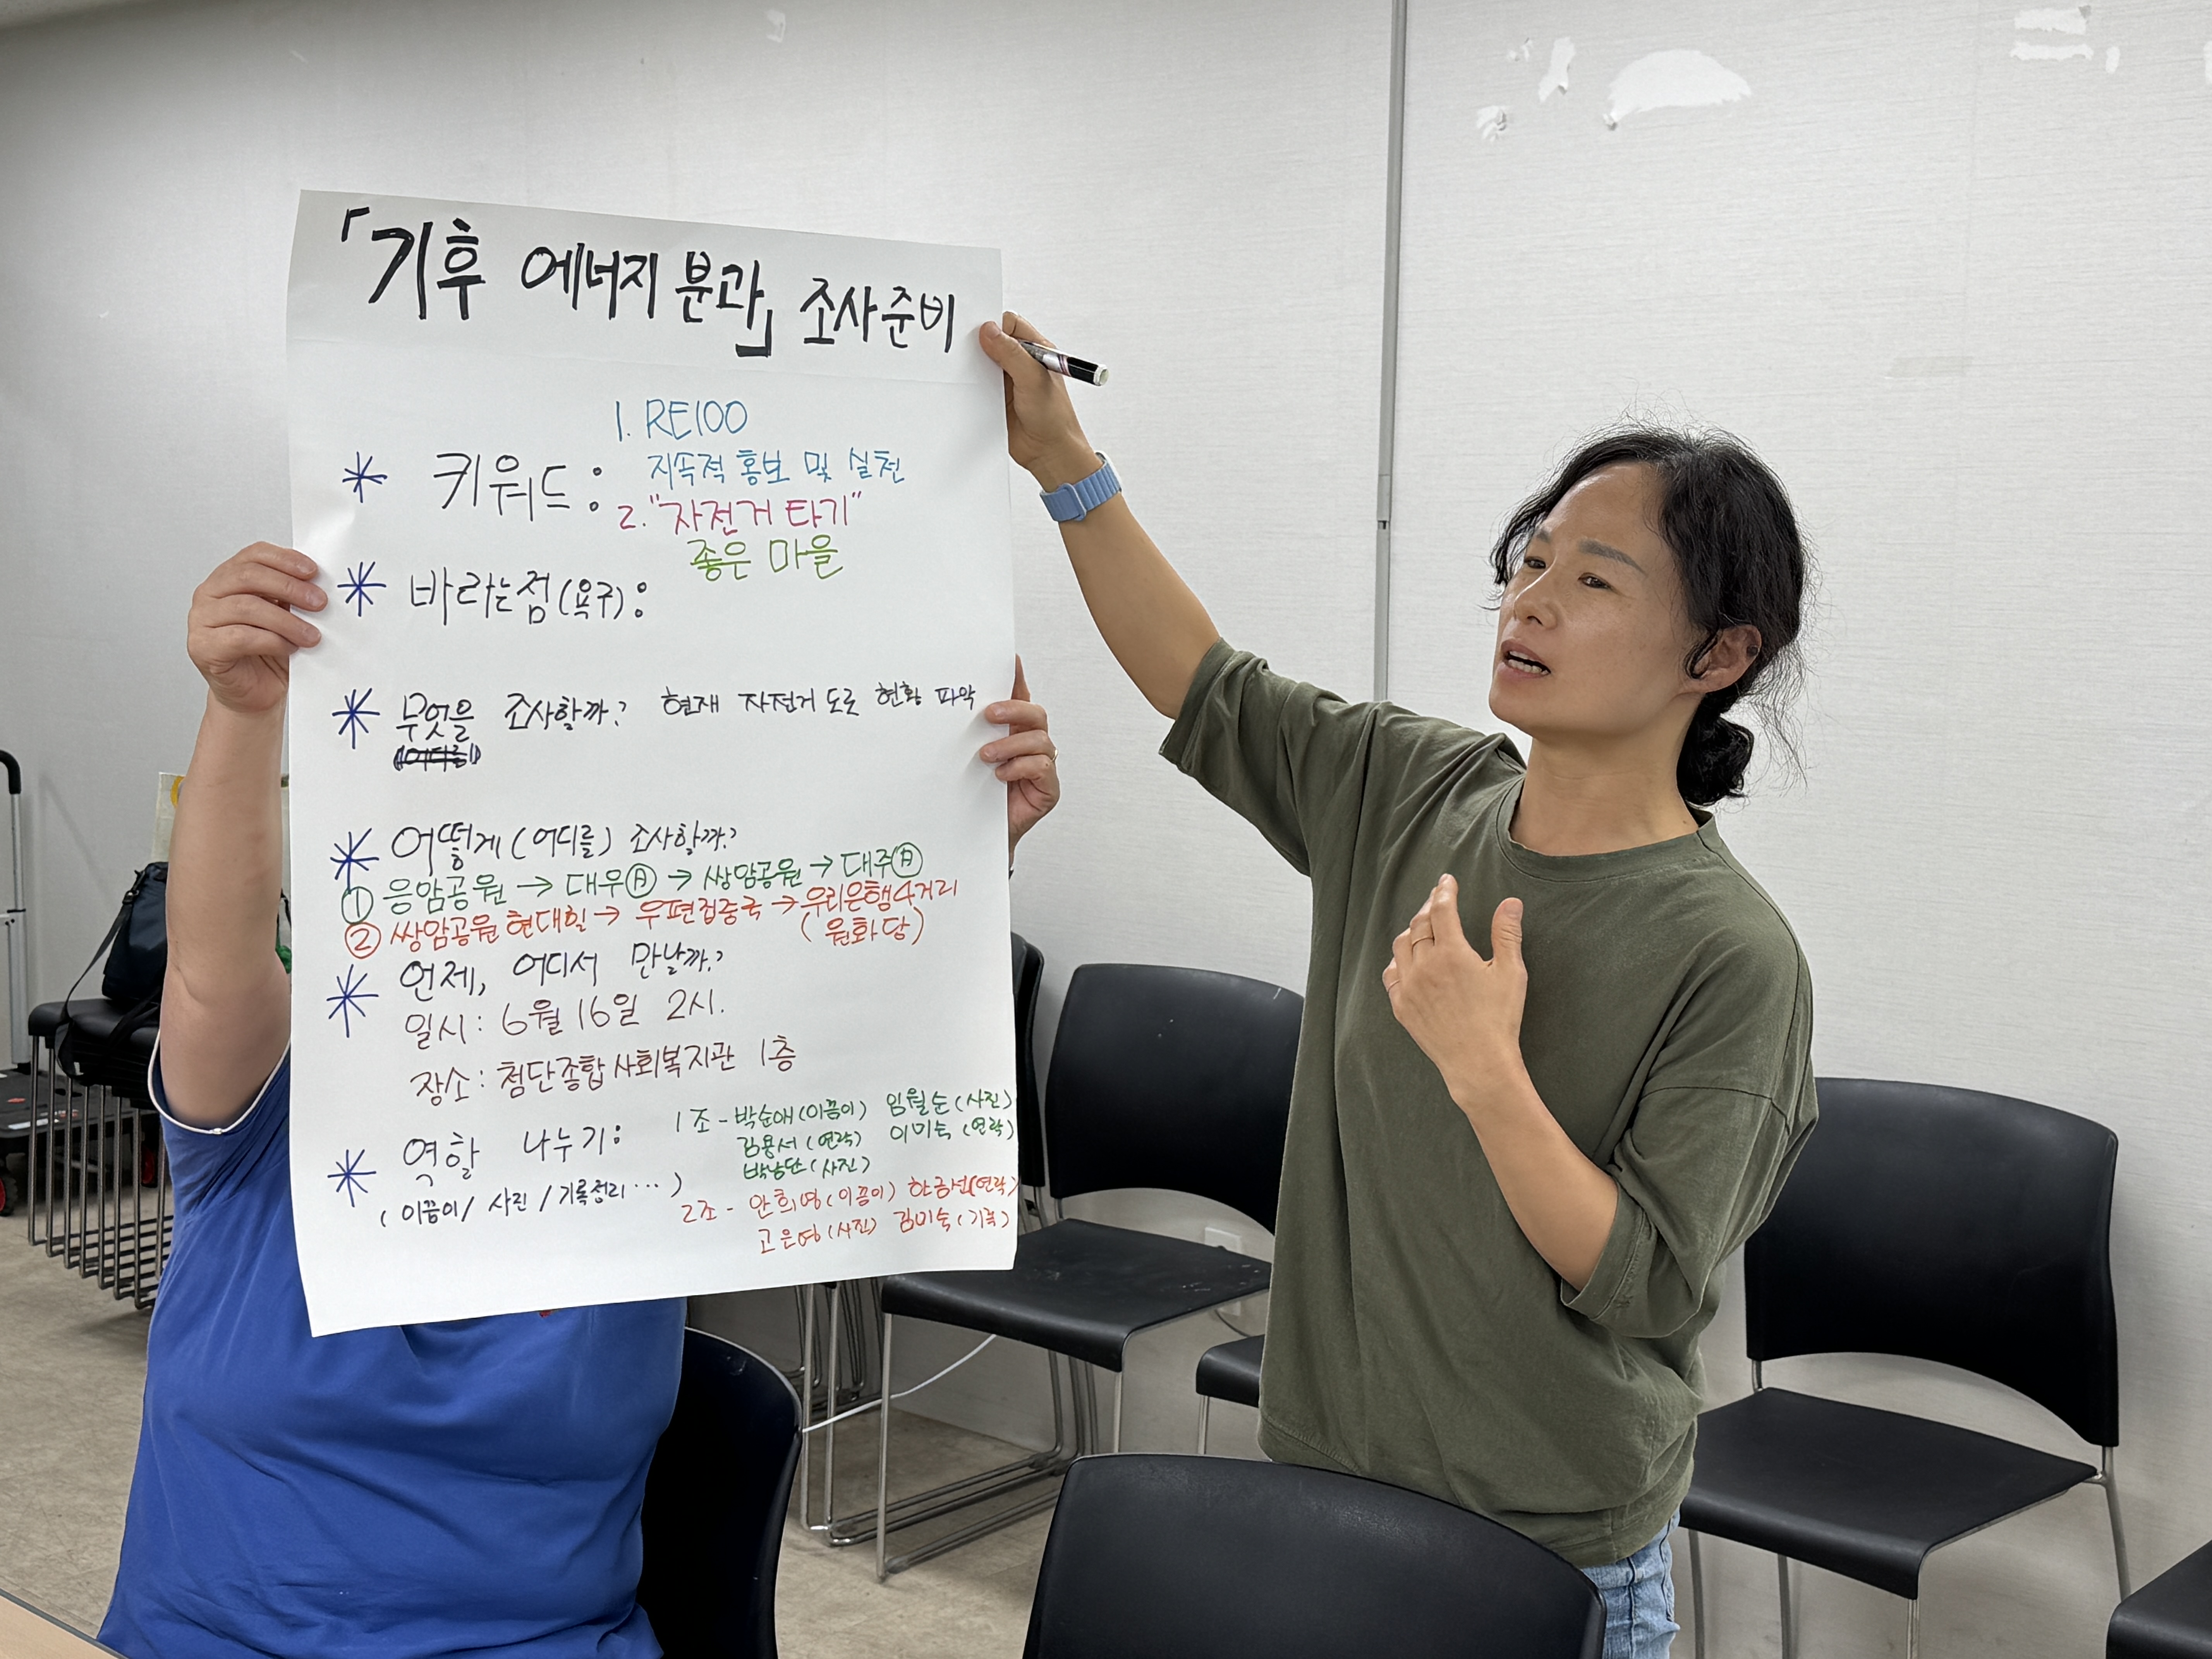 「기후 에너지 분과」 조사준비
* 키워드 :
1. RE100
지속적 홍보 및 실천
2. "자전거 타기"
좋은 마을
* 바라는점(욕구) :
* 무엇을 조사할까? 현재 자전거 도로 현황 파악
* 어떻게(어디를) 조사할까?
① 응암공원 → 대우Ⓐ → 쌍암공원 → 대주Ⓐ
② 쌍암공원 현대힐 → 우편집중국 → 우리은행4거리
(원화당)
* 언제, 어디서 만날까?
일시 : 6월 16일 2시.
장소 : 첨단종합사회복지관 1층
* 역할 나누기 :
(이끔이/ 사진 /기록정리 ··· )
1조 - 박순애(이끔이) 임월순(사진)
김용서(연락) 이미숙(연락)
박남단(사진)
2조 - 안희영(이끔이) 한금선(연락)
고은영(사진) 김미숙(기록)